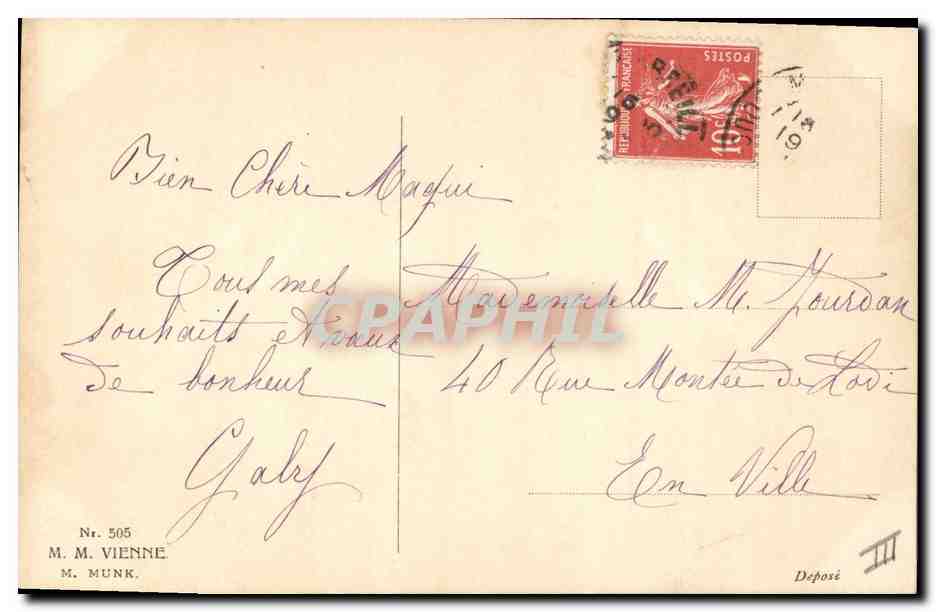 REPUBLIQUE FRANÇAISE
POSTES
10c
Bien Chère Magui
Tous mes
souhaits et vœux
de bonheur
Gaby
Mademoiselle M. Jourdan
40 Rue Montée de Lodi
En Ville
CPAPHIL
Nr. 505
M. M. VIENNE.
M. MUNK.
Déposé
III